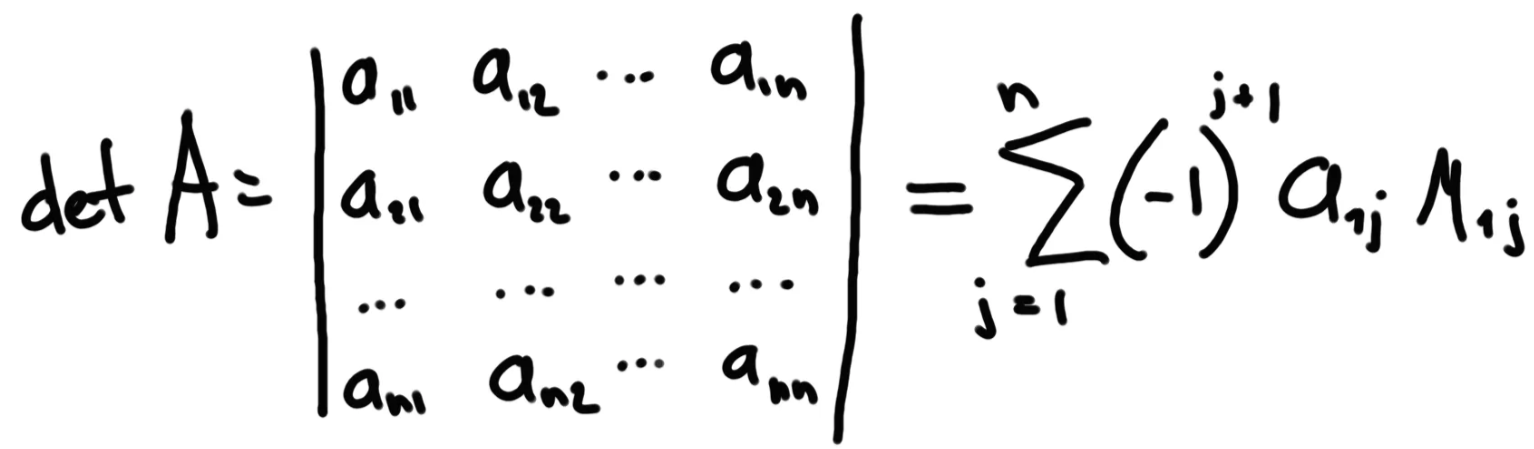 $$\det A = \begin{vmatrix} a_{11} & a_{12} & \cdots & a_{1n} \\ a_{21} & a_{22} & \cdots & a_{2n} \\ \cdots & \cdots & \cdots & \cdots \\ a_{n1} & a_{n2} & \cdots & a_{nn} \end{vmatrix} = \sum_{j=1}^{n} (-1)^{j+1} a_{1j} M_{1j}$$